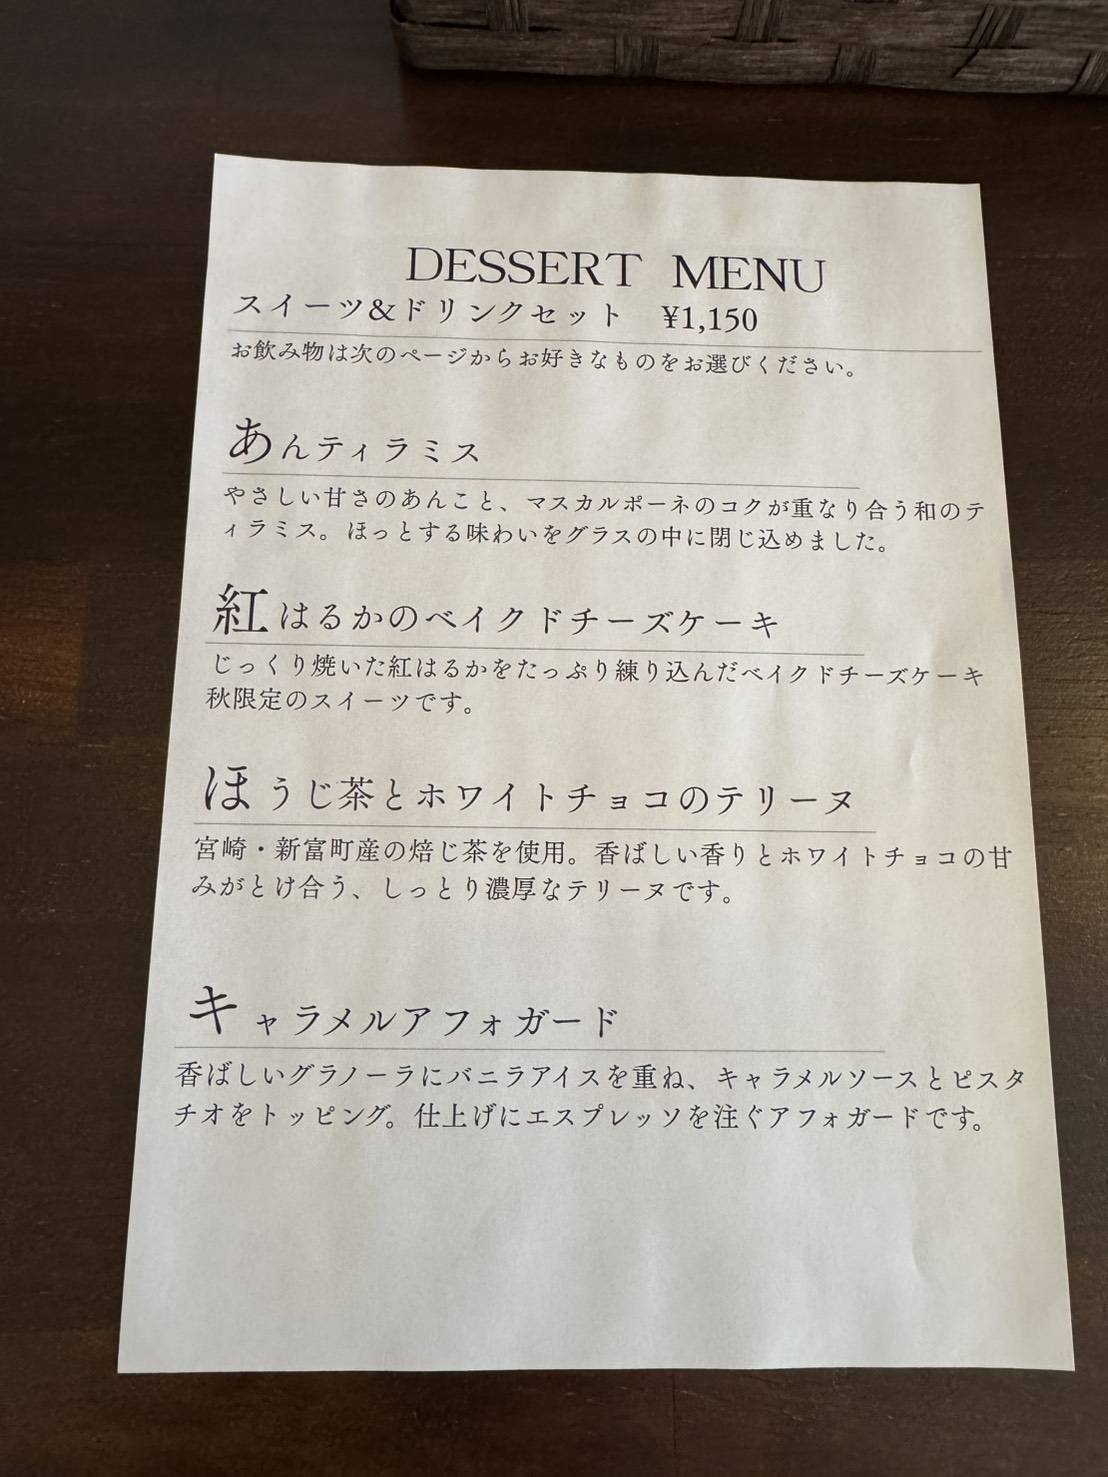 DESSERT MENU
スイーツ&ドリンクセット ¥1,150
お飲み物は次のページからお好きなものをお選びください。
あんティラミス
やさしい甘さのあんこと、マスカルポーネのコクが重なり合う和のテ
ィラミス。ほっとする味わいをグラスの中に閉じ込めました。
紅はるかのベイクドチーズケーキ
じっくり焼いた紅はるかをたっぷり練り込んだベイクドチーズケーキ
秋限定のスイーツです。
ほうじ茶とホワイトチョコのテリーヌ
宮崎・新富町産の焙じ茶を使用。香ばしい香りとホワイトチョコの甘
みがとけ合う、しっとり濃厚なテリーヌです。
キャラメルアフォガード
香ばしいグラノーラにバニラアイスを重ね、キャラメルソースとピスタ
チオをトッピング。仕上げにエスプレッソを注ぐアフォガードです。